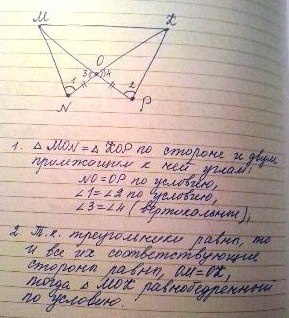 M
K
O
3
4
1
2
N
P
1. △ MON = △ KOP по стороне и двум
прилежащим к ней углам:
NO = OP по условию,
∠1 = ∠2 по условию,
∠3 = ∠4 (вертикальные),
2 Т.к. треугольники равны, то
и все их соответствующие
стороны равны, OM = OK,
тогда △ MOK равнобедренный
по условию.